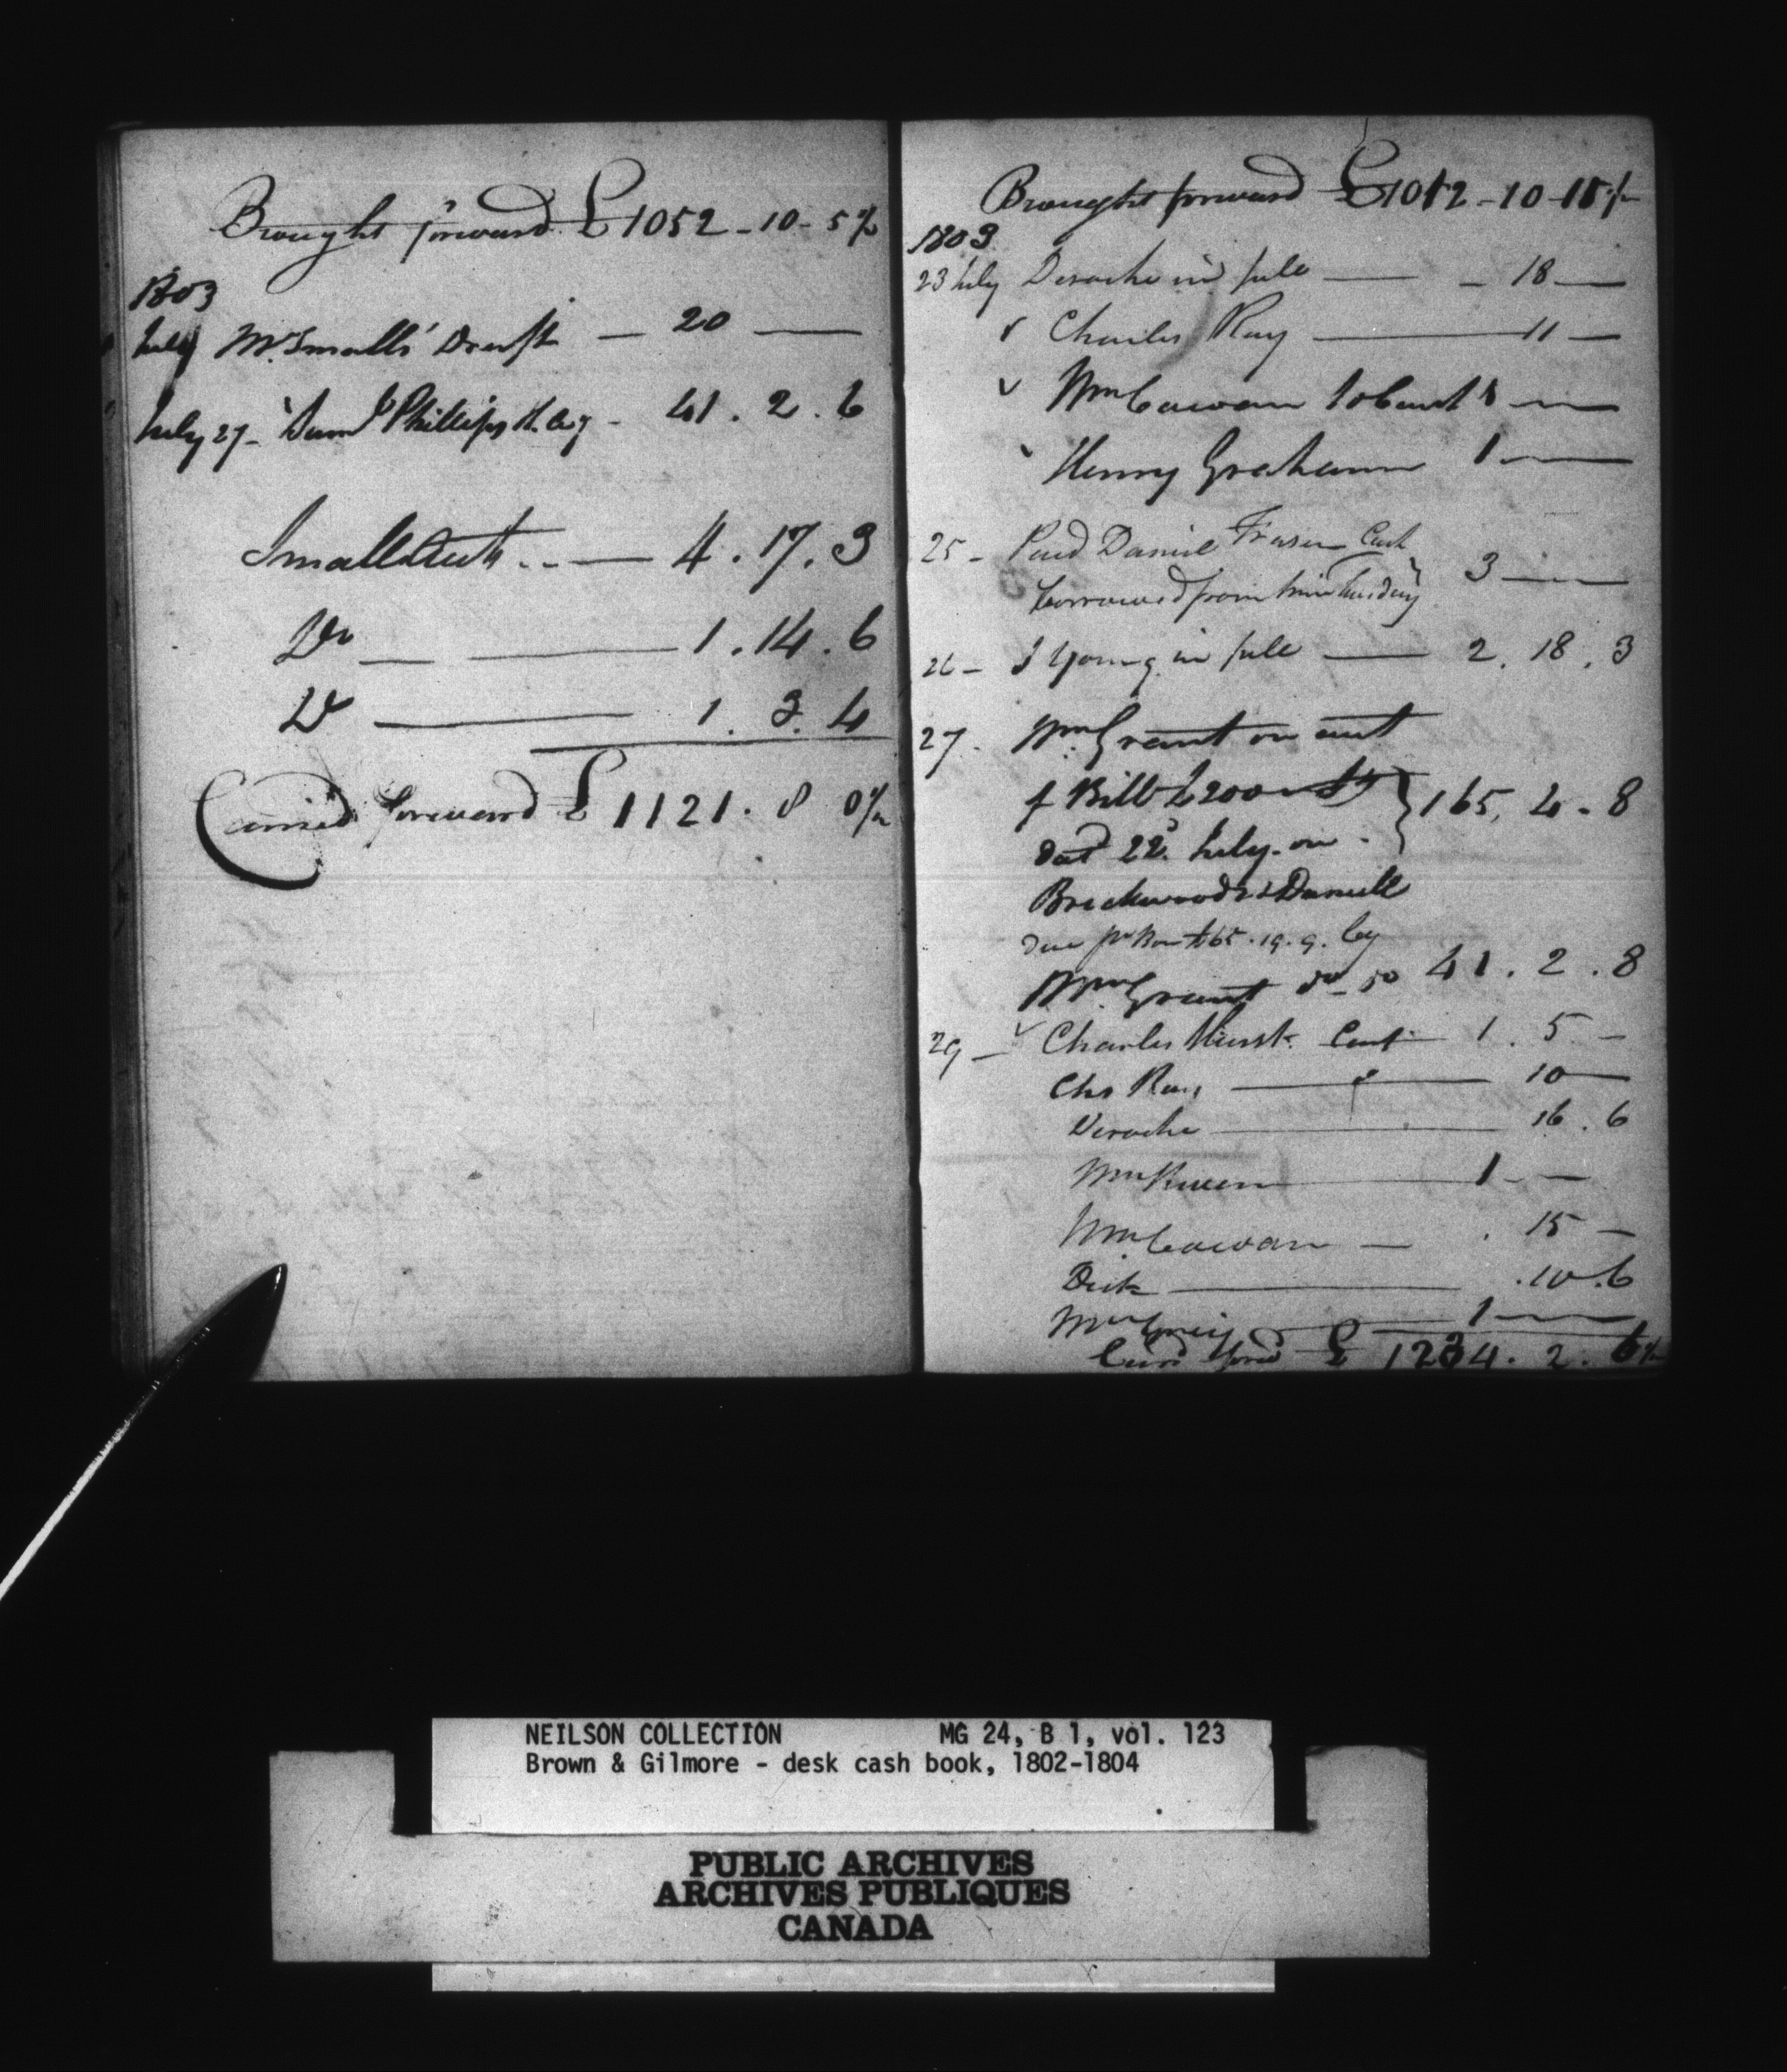 Brought forward £1052-10-5½
1803
July Mr Smalls' Draft — 20 —
July 27- Saml Phillips - 41.2.6
Small Acct .. — 4.17.3
Do — 1.14.6
Do — 1.3.4
Carried forward £1121.8 0½
Brought forward £1012-10-
1803
23 July Deroche in full — 18 —
Charles Ray — 11 —
Wm Cowan —
Henry Graham 1 —
25- Paid Daniel Fraser Cash
borrowed from him Tuesday } 3 —
26- J Young in full — 2.18.3
27. Wm Grant on acct
f Bill £200
dat 22d July on } 165.4.8
Brickwood & Daniell
due 65.19.9. by
Wm Grant do do 41.2.8
29- Charles Hirst 1.5 —
Chs Ray — 10 —
Deroche — 16.6
Wm — 1 —
Wm Cowan — 15 —
Dick — .10.6
1 —
Card ford £1234.2.6½
NEILSON COLLECTION MG 24, B 1, vol. 123
Brown & Gilmore - desk cash book, 1802-1804
PUBLIC ARCHIVES
ARCHIVES PUBLIQUES
CANADA